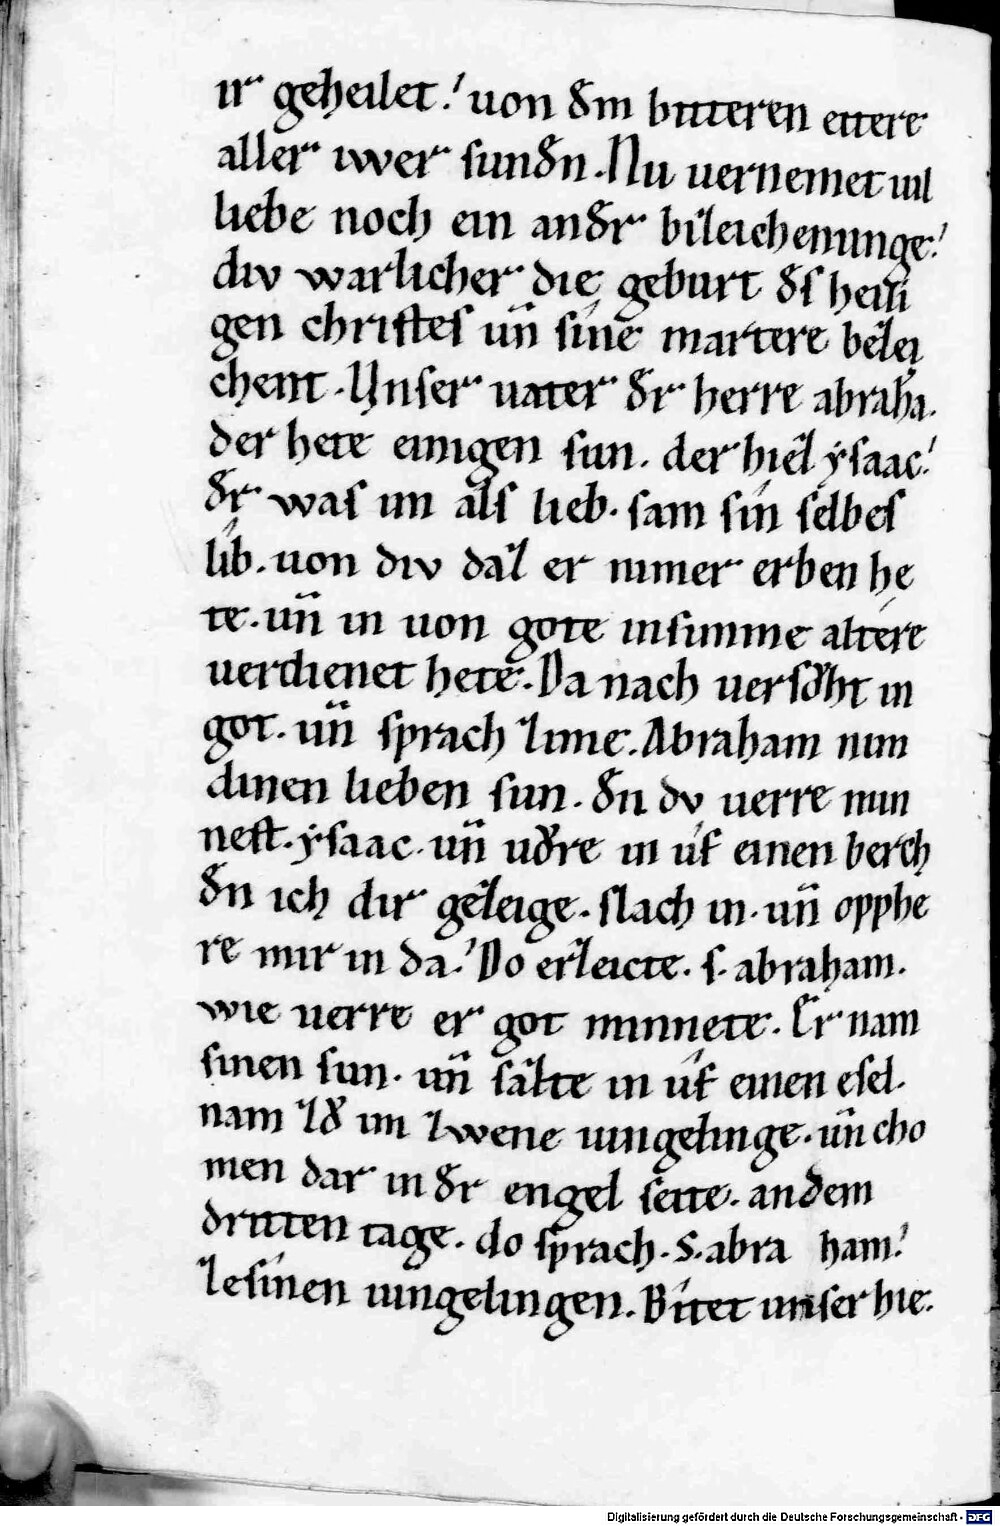 ir geheilet! uon đm bitteren eittere
aller iwer sunđn. Nu uernemet uil
liebe noch ein anđr bizeichenunge!
div warlicher die geburt đs heili
gen christes uñ sine martere bezei
chent. Unser uater đr herre abrahā.
der hete einigen sun. der hiez ẏsaac!
đr was im als lieb. sam sín selbes
líb. von div daz er nimer erben he
te. uñ in uon gote insinme altere
uerdienet hete. Da nach uersůht in
got. uñ sprach zime. Abraham nim
dinen lieben sun. đn dv uerre min
nest. ẏsaac. uñ uůre in úf einen berch
đn ich dir gezeige. slach in. uñ opphe
re mir in da! Do erzeicte. s. abraham.
wie uerre er got minnete. Er nam
sinen sun. uñ sazte in úf einen esel.
nam zů im zwene iungelinge. uñ cho
men dar in đr engel seite. an dem
dritten tage. do sprach. S. abra ham!
zesínen iungelingen. Bítet unser hie.
Digitalisierung gefördert durch die Deutsche Forschungsgemeinschaft - DFG